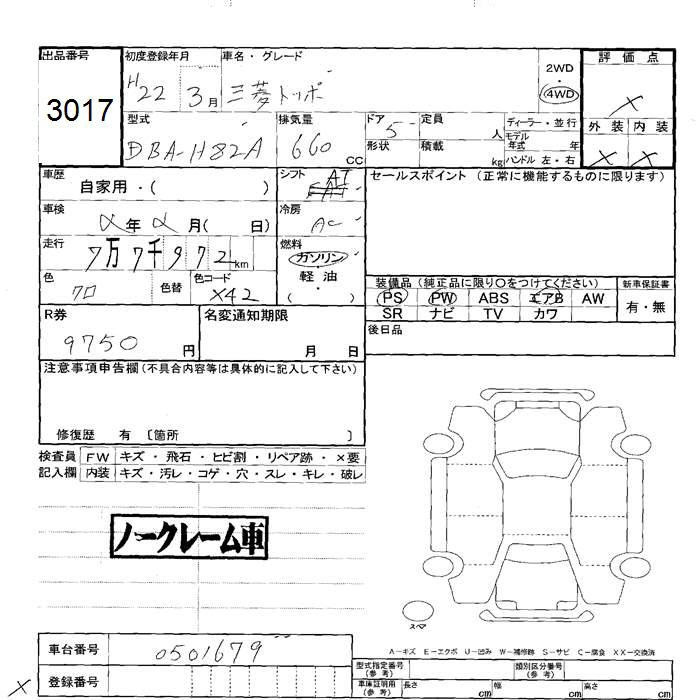 出品番号 初度登録年月 車名・グレード 評価点
3017
H22 3月 三菱トッポ 2WD・4WD ×
型式 排気量 ドア 定員 ディーラー・並行 外装 内装
DBA-H82A 660cc 5 人 モデル年式 年 × ×
形状 積載 kg ハンドル 左・右
車歴 シフト セールスポイント (正常に機能するものに限ります)
自家用・( ) AT
車検 冷房
年 月( 日) AC
走行 燃料
7万7千972km ガソリン・軽油
( )
色 色替 色コード 装備品(純正品に限り○をつけてください) 新車保証書
クロ X42 PS PW ABS エアB AW 有・無
SR ナビ TV カワ
R券 名変通知期限 後日品
9750円 月 日
注意事項申告欄(不具合内容等は具体的に記入して下さい)
修復歴 有 〔箇所 〕
検査員 FW キズ・飛石・ヒビ割・リペア跡・×要
記入欄 内装 キズ・汚レ・コゲ・穴・スレ・キレ・破レ
ノークレーム車
スペア
車台番号 0501679
A-キズ E-エクボ U-凹み W-補修跡 S-サビ C-腐食 XX-交換済
× 登録番号
型式指定番号(参考) 類別区分番号(参考)
車庫証明用(参考) 長さ cm 幅 cm 高さ cm